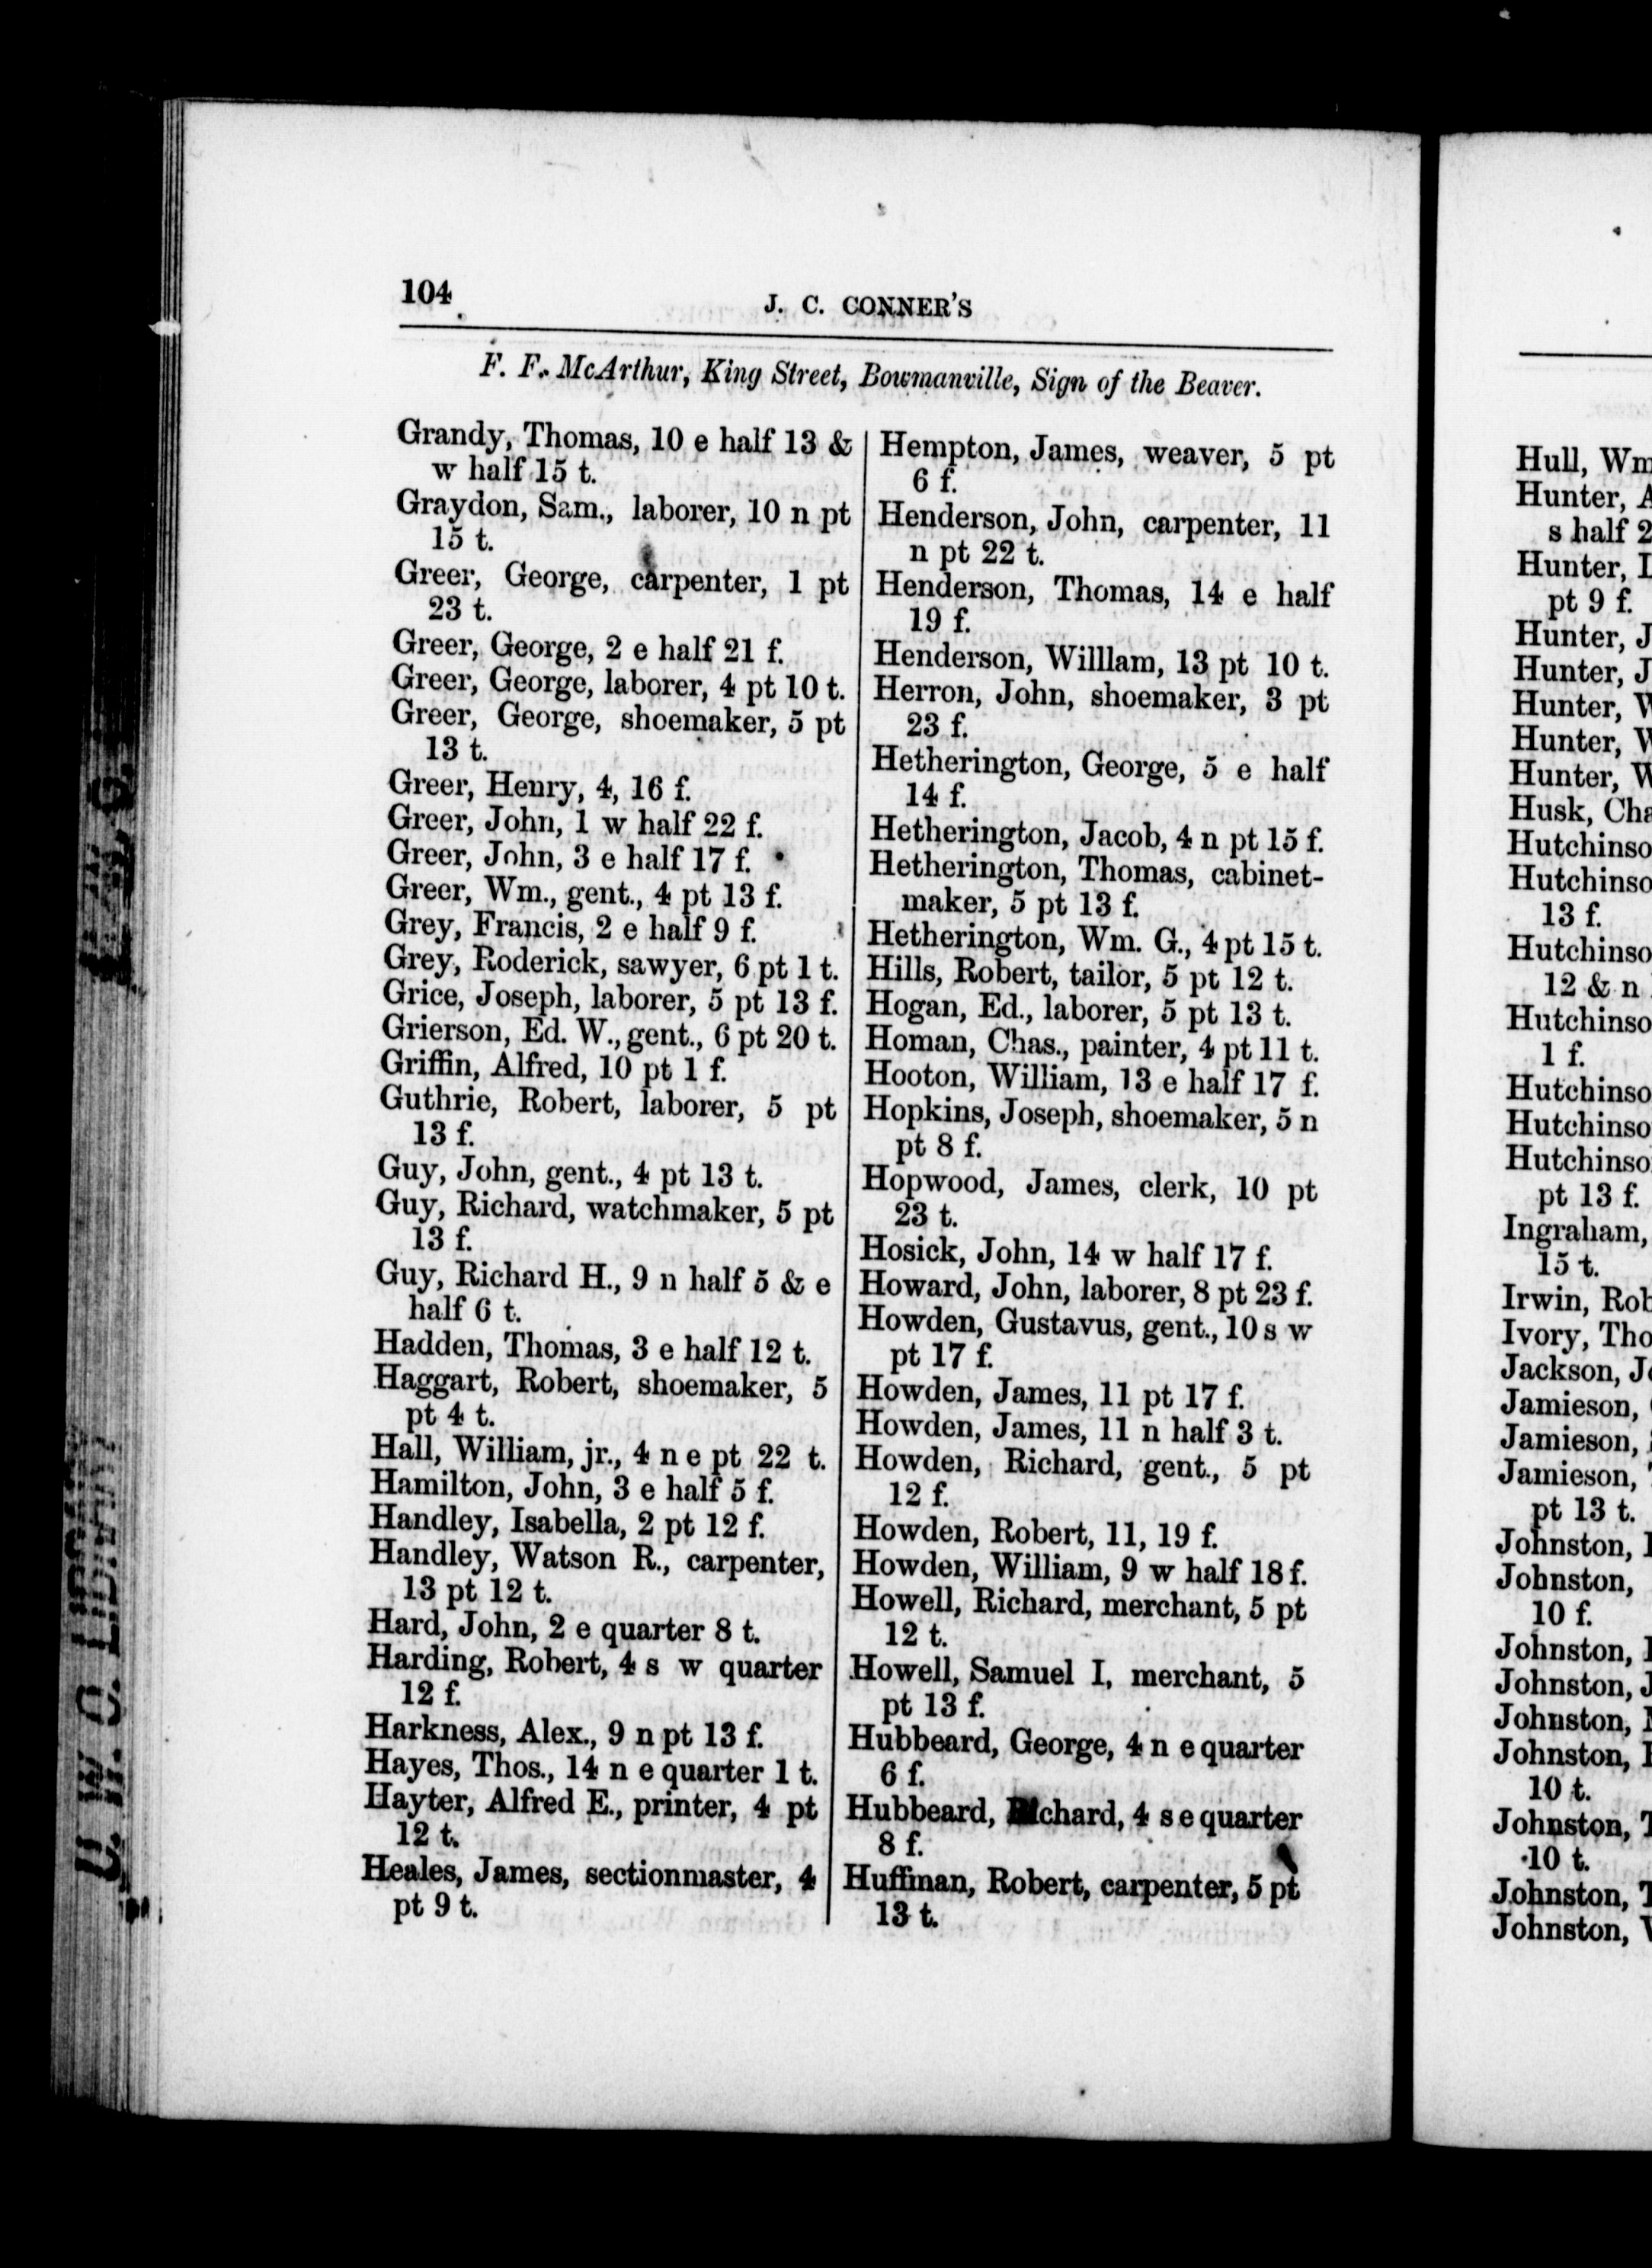 104
J. C. CONNER'S
F. F. McArthur, King Street, Bowmanville, Sign of the Beaver.
Grandy, Thomas, 10 e half 13 &
w half 15 t.
Graydon, Sam., laborer, 10 n pt
15 t.
Greer, George, carpenter, 1 pt
23 t.
Greer, George, 2 e half 21 f.
Greer, George, laborer, 4 pt 10 t.
Greer, George, shoemaker, 5 pt
13 t.
Greer, Henry, 4, 16 f.
Greer, John, 1 w half 22 f.
Greer, John, 3 e half 17 f.
Greer, Wm., gent., 4 pt 13 f.
Grey, Francis, 2 e half 9 f.
Grey, Roderick, sawyer, 6 pt 1 t.
Grice, Joseph, laborer, 5 pt 13 f.
Grierson, Ed. W., gent., 6 pt 20 t.
Griffin, Alfred, 10 pt 1 f.
Guthrie, Robert, laborer, 5 pt
13 f.
Guy, John, gent., 4 pt 13 t.
Guy, Richard, watchmaker, 5 pt
13 f.
Guy, Richard H., 9 n half 5 & e
half 6 t.
Hadden, Thomas, 3 e half 12 t.
Haggart, Robert, shoemaker, 5
pt 4 t.
Hall, William, jr., 4 n e pt 22 t.
Hamilton, John, 3 e half 5 f.
Handley, Isabella, 2 pt 12 f.
Handley, Watson R., carpenter,
13 pt 12 t.
Hard, John, 2 e quarter 8 t.
Harding, Robert, 4 s w quarter
12 f.
Harkness, Alex., 9 n pt 13 f.
Hayes, Thos., 14 n e quarter 1 t.
Hayter, Alfred E., printer, 4 pt
12 t.
Heales, James, sectionmaster, 4
pt 9 t.
Hempton, James, weaver, 5 pt
6 f.
Henderson, John, carpenter, 11
n pt 22 t.
Henderson, Thomas, 14 e half
19 f.
Henderson, Willlam, 13 pt 10 t.
Herron, John, shoemaker, 3 pt
23 f.
Hetherington, George, 5 e half
14 f.
Hetherington, Jacob, 4 n pt 15 f.
Hetherington, Thomas, cabinet-
maker, 5 pt 13 f.
Hetherington, Wm. G., 4 pt 15 t.
Hills, Robert, tailor, 5 pt 12 t.
Hogan, Ed., laborer, 5 pt 13 t.
Homan, Chas., painter, 4 pt 11 t.
Hooton, William, 13 e half 17 f.
Hopkins, Joseph, shoemaker, 5 n
pt 8 f.
Hopwood, James, clerk, 10 pt
23 t.
Hosick, John, 14 w half 17 f.
Howard, John, laborer, 8 pt 23 f.
Howden, Gustavus, gent., 10 s w
pt 17 f.
Howden, James, 11 pt 17 f.
Howden, James, 11 n half 3 t.
Howden, Richard, gent., 5 pt
12 f.
Howden, Robert, 11, 19 f.
Howden, William, 9 w half 18 f.
Howell, Richard, merchant, 5 pt
12 t.
Howell, Samuel I, merchant, 5
pt 13 f.
Hubbeard, George, 4 n e quarter
6 f.
Hubbeard, Richard, 4 s e quarter
8 f.
Huffman, Robert, carpenter, 5 pt
13 t.
Hull, Wm
Hunter,
s half 2
Hunter,
pt 9 f.
Hunter, J
Hunter, J
Hunter,
Hunter,
Hunter, W
Husk, Cha
Hutchinso
Hutchinso
13 f.
Hutchinso
12 & n
Hutchinso
1 f.
Hutchinso
Hutchinso
Hutchinso
pt 13 f.
Ingraham,
15 t.
Irwin, Rob
Ivory, Tho
Jackson, Jo
Jamieson,
Jamieson,
Jamieson,
pt 13 t.
Johnston,
Johnston,
10 f.
Johnston,
Johnston, J
Johnston,
Johnston,
10 t.
Johnston,
10 t.
Johnston,
Johnston,